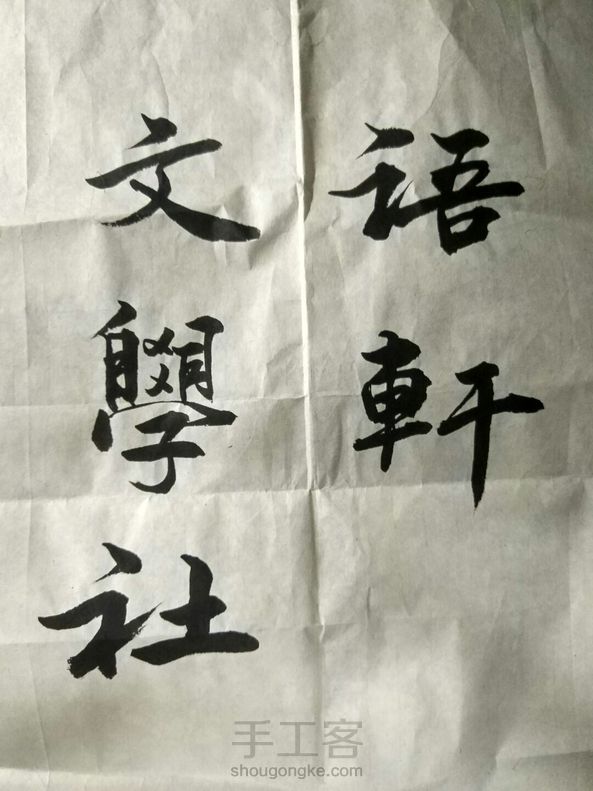 语軒
文學社
手工客
shougongke.com